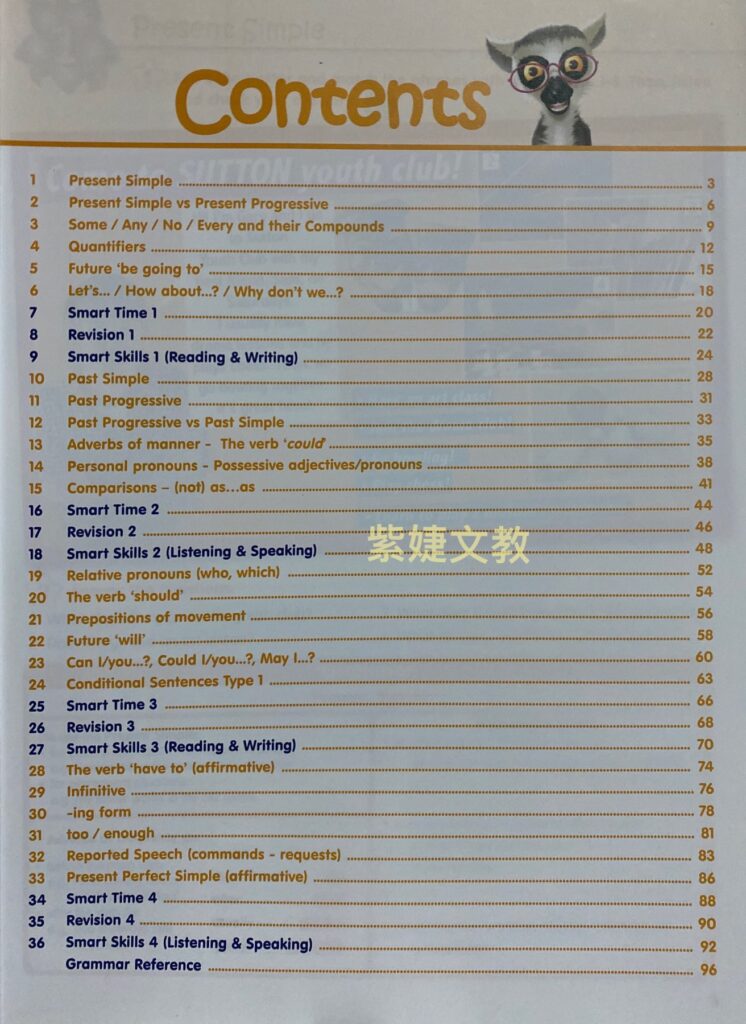 Present Simple
Contents
SUTTON youth club!
1 Present Simple 3
2 Present Simple vs Present Progressive 6
3 Some / Any / No / Every and their Compounds 9
4 Quantifiers 12
5 Future ‘be going to’ 15
6 Let’s... / How about...? / Why don’t we...? 18
7 Smart Time 1 20
8 Revision 1 22
9 Smart Skills 1 (Reading & Writing) 24
10 Past Simple 28
11 Past Progressive 31
12 Past Progressive vs Past Simple 33
13 Adverbs of manner - The verb ‘could’ 35
14 Personal pronouns - Possessive adjectives/pronouns 38
15 Comparisons – (not) as...as 41
16 Smart Time 2 44
17 Revision 2 46
紫婕文教
18 Smart Skills 2 (Listening & Speaking) 48
19 Relative pronouns (who, which) 52
20 The verb ‘should’ 54
21 Prepositions of movement 56
22 Future ‘will’ 58
23 Can I/you...?, Could I/you...?, May I...? 60
24 Conditional Sentences Type 1 63
25 Smart Time 3 66
26 Revision 3 68
27 Smart Skills 3 (Reading & Writing) 70
28 The verb ‘have to’ (affirmative) 74
29 Infinitive 76
30 -ing form 78
31 too / enough 81
32 Reported Speech (commands - requests) 83
33 Present Perfect Simple (affirmative) 86
34 Smart Time 4 88
35 Revision 4 90
36 Smart Skills 4 (Listening & Speaking) 92
Grammar Reference 96